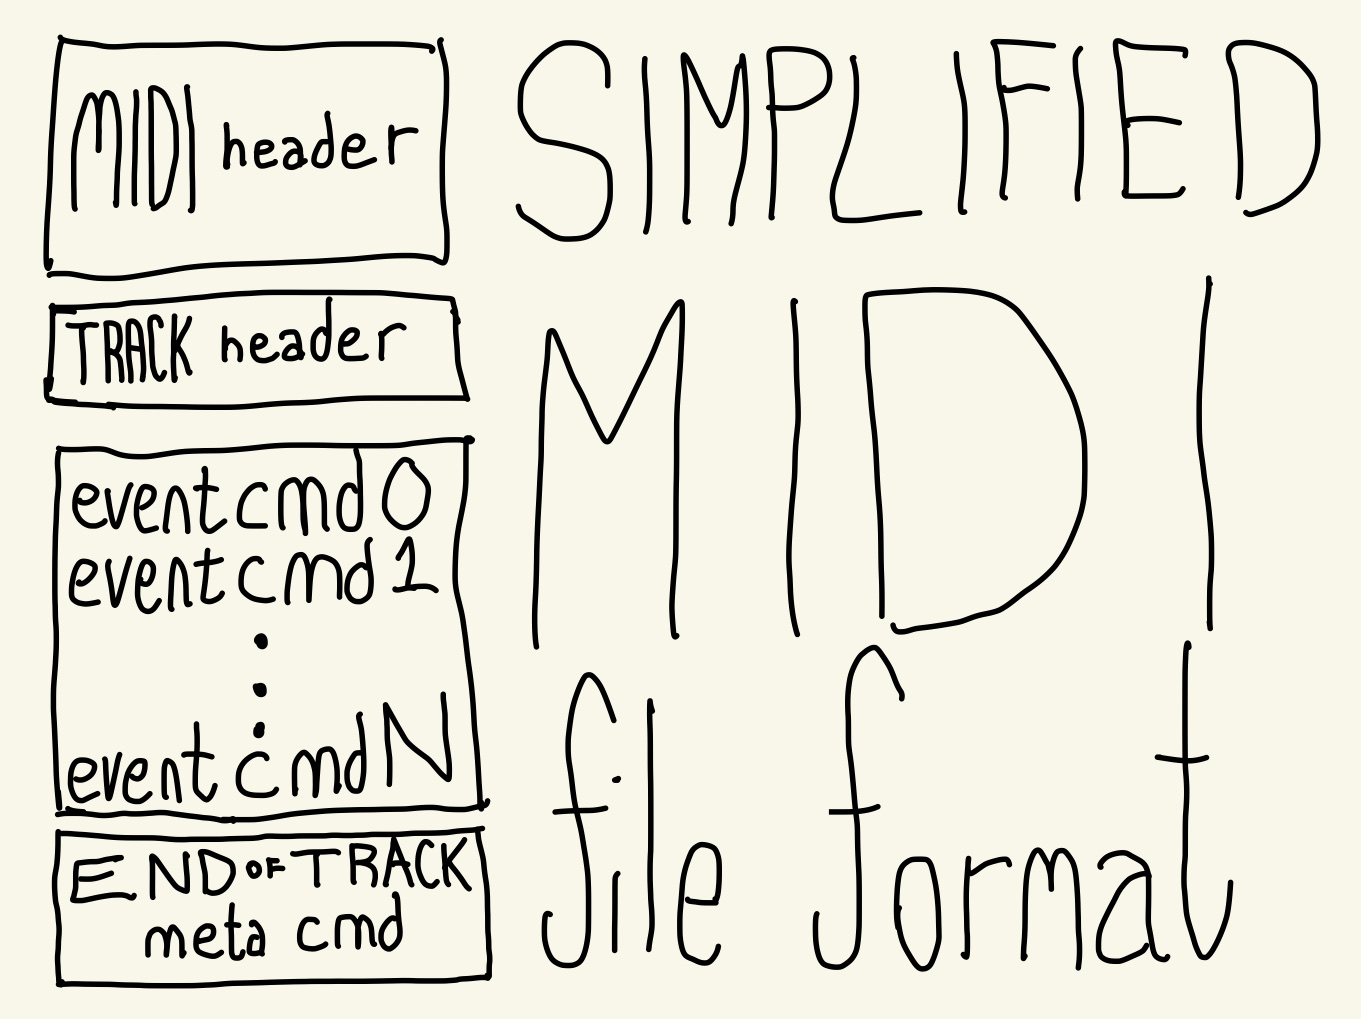 MIDI header
TRACK header
event cmd 0
event cmd 1
event cmd N
END OF TRACK
meta cmd
SIMPLIFIED
MIDI
file format